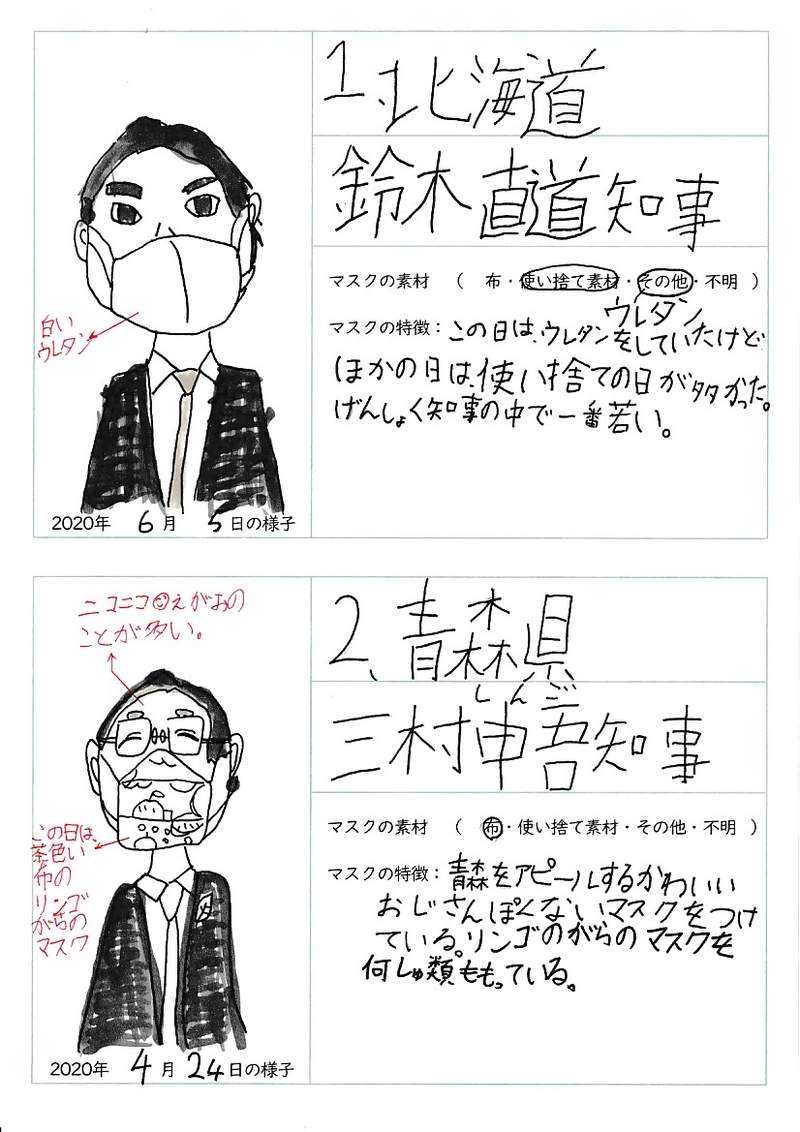 1、北海道
鈴木直道知事
マスクの素材 ( 布・使い捨て素材・その他・不明 )
ウレタン
マスクの特徴:この日は、ウレタンをしていたけど
ほかの日は、使い捨ての日が多かった。
げんしょく知事の中で一番若い。
白い
ウレタン
2020年 6月 5日の様子
2、青森県
しんご
三村申吾知事
マスクの素材 ( 布・使い捨て素材・その他・不明 )
マスクの特徴:青森をアピールするかわいい
おじさんぽくないマスクをつけ
ている。リンゴのがらのマスクを
何しゅ類ももっている。
ニコニコえがおの
ことが多い。
この日は、
茶色い
布の
リンゴ
がらの
マスク
2020年 4月 24日の様子